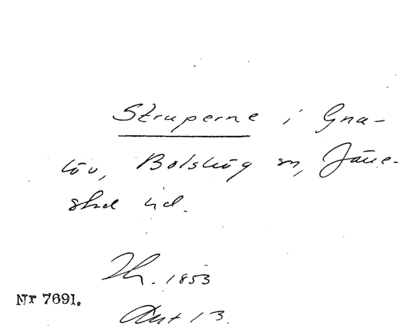 Struperne i Gna-
löv, Bolshög sn, Järre-
stad hd.
Th. 1853
Nr 7691.
13.